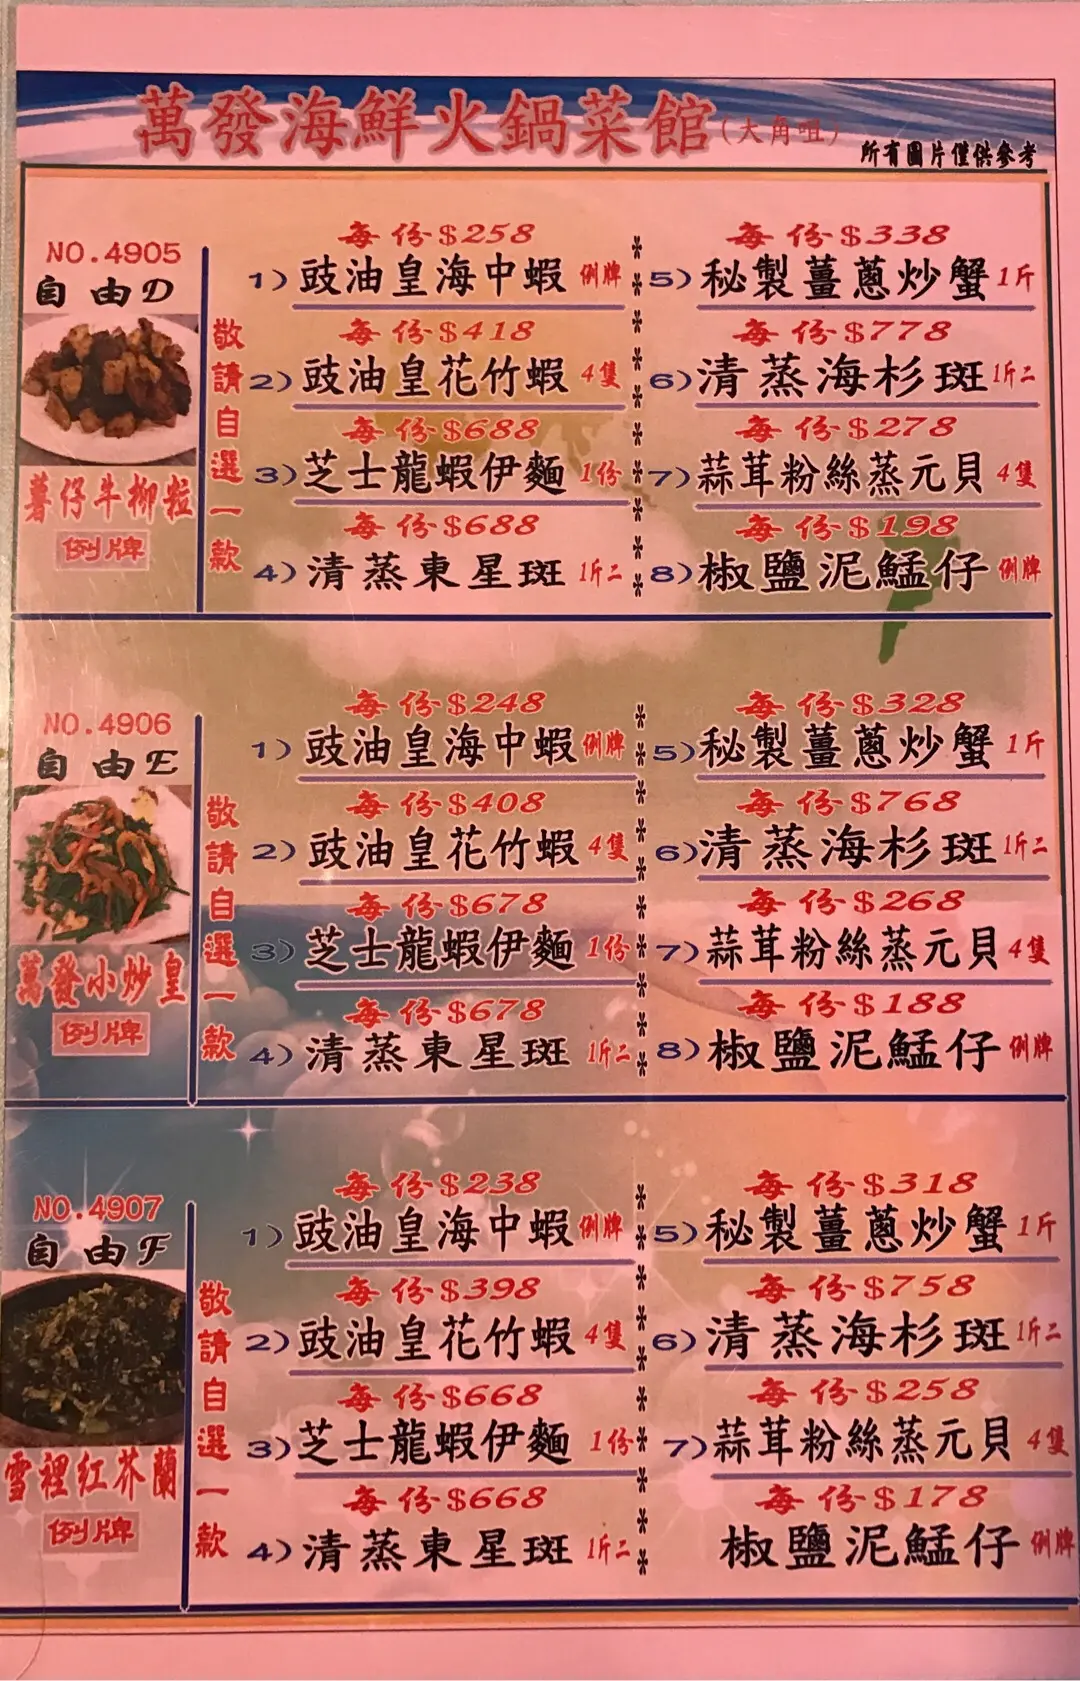 萬發海鮮火鍋菜館(大角咀)
所有圖片僅供參考
NO.4905
自由D
薯仔牛柳粒
例牌
敬請自選一款
每份$258
1)豉油皇海中蝦 例牌
每份$418
2)豉油皇花竹蝦 4隻
每份$688
3)芝士龍蝦伊麵 1份
每份$688
4)清蒸東星斑 1斤二
每份$338
5)秘製薑蔥炒蟹 1斤
每份$778
6)清蒸海杉斑 1斤二
每份$278
7)蒜茸粉絲蒸元貝 4隻
每份$198
8)椒鹽泥鯭仔 例牌
NO.4906
自由E
萬發小炒皇
例牌
敬請自選一款
每份$248
1)豉油皇海中蝦 例牌
每份$408
2)豉油皇花竹蝦 4隻
每份$678
3)芝士龍蝦伊麵 1份
每份$678
4)清蒸東星斑 1斤二
每份$328
5)秘製薑蔥炒蟹 1斤
每份$768
6)清蒸海杉斑 1斤二
每份$268
7)蒜茸粉絲蒸元貝 4隻
每份$188
8)椒鹽泥鯭仔 例牌
NO.4907
自由F
雪裡紅芥蘭
例牌
敬請自選一款
每份$238
1)豉油皇海中蝦 例牌
每份$398
2)豉油皇花竹蝦 4隻
每份$668
3)芝士龍蝦伊麵 1份
每份$668
4)清蒸東星斑 1斤二
每份$318
5)秘製薑蔥炒蟹 1斤
每份$758
6)清蒸海杉斑 1斤二
每份$258
7)蒜茸粉絲蒸元貝 4隻
每份$178
椒鹽泥鯭仔 例牌